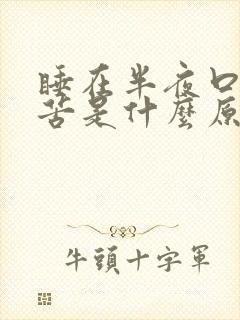 睡在半夜口
苦是什麼原
牛頭十字軍